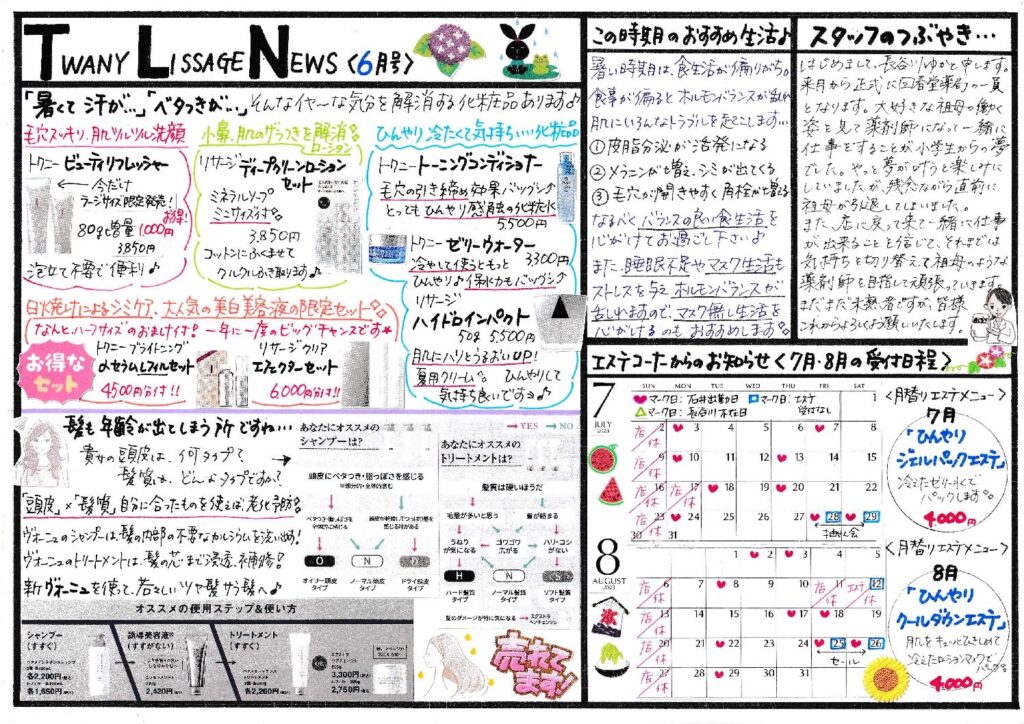 TWANY LISSAGE NEWS <6月号>
「暑くて汗が…」「ベタつきが…」そんなイヤーな気分を解消する化粧品あります♪
毛穴スッキリ、肌ツルツル洗顔
トワニー ビューティリフレッシャー
← 今だけ
ラージサイズ限定発売!
お得!
80g増量 1,000円
3,850円
泡立て不要で便利♪
小鼻、肌のザラつきを解消
ローション
リサージ
ディープクリーンローション
セット
ミネラルソープ
ミニサイズ
3,850円
コットンにふくませて
クルクルふき取ります
ひんやり冷たくて気持ちいい化粧品
トワニー トーニングコンディショナー
毛穴の引き締め効果バツグン♪
とってもひんやり感触の化粧水
5,500円
トワニー ゼリーウォーター
冷やして使うともっと 3,300円
ひんやり♪ 保水力もバツグン♪
リサージ
ハイドロインパクト
50g 5,500円
肌にハリとうるおいUP!
夏用クリーム。ひんやりして
気持ち良いですョ♪
日焼けによるシミケア、大人気の美白美容液の限定セット
なんと、ハーフサイズのおまけ付き! 一年に一度のビッグチャンスです☆
お得な
セット
トワニー ブライトニング
のセラムLフィルセット
4500円分付!!
リサージ クリア
エフェクターセット
6,000円分付!!
髪も年齢が出てしまう所ですね…
貴女の頭皮は、何タイプで
髪質は、どんなタイプですか?
「頭皮」×「髪質」自分に合ったものを使えば老化予防!
ヴォーニュのシャンプーは髪の内部の不要なカルシウムを洗い出し!
ヴォーニュのトリートメントは、髪の芯まで浸透・補修!
新ヴォーニュを使って、若々しいツヤ髪サラ髪へ♪
→ YES → NO
あなたにオススメの
シャンプーは?
頭皮にベタつき・脂っぽさを感じる
O
N
D
オイリー頭皮
タイプ
ノーマル頭皮
タイプ
ドライ頭皮
タイプ
あなたにオススメの
トリートメントは?
髪質は硬いほうだ
毛量が多いと思う
髪が絡まる
うねり
が気になる
ゴワゴワ
広がる
ハリ・コシ
がない
H
N
S
ハード髪質
タイプ
ノーマル髪質
タイプ
ソフト髪質
タイプ
髪のダメージが特に気になる
オススメの使用ステップ&使い方
シャンプー
(すすぐ)
各2,200円
各1,650円
誘導美容液
(すすがない)
2,420円
トリートメント
(すすぐ)
各2,200円
3,300円
2,750円
売れて
ます!
この時期のおすすめ生活♪
暑い時期は、食生活が偏りがち。
食事が偏るとホルモンバランスが乱れ
肌にいろんなトラブルを起こします…
① 皮脂分泌が活発になる
② メラニンが増え、シミが出てくる
③ 毛穴が開きやすく角栓が増える
なるべくバランスの良い食生活を
心がけてお過ごし下さい♪
また、睡眠不足やマスク生活も
ストレスを与えホルモンバランスが
乱れますので、マスク無し生活を
心がけるのもおすすめします
スタッフのつぶやき…
はじめまして、長谷川ゆかと申します。
来月から正式に回春堂薬局の一員
となります。大好きな祖母の働く
姿を見て薬剤師になって一緒に
仕事をすることが小学生からの夢
でした。やっと夢が叶うと楽しみに
していましたが、残念ながら直前に
祖母が引退してしまいました。
また、店に戻って来て一緒に仕事
が出来ることを信じて、それまでは
気持ちを切り替えて祖母のような
薬剤師を目指して頑張っていきます。
まだまだ未熟者ですが、皆様
これからよろしくお願いいたします。
エステコーナーからのお知らせ <7月・8月の受付日程>
7
JULY
2023
SUN MON TUE WED THU FRI SAT
♥マーク日:石井出勤日 ■マーク日:エステ受付なし
△マーク日:長谷川不在日
1
店休 2 3 4 5 6 7 8
店休 9 10 11 12 13 14 15
店休 16 店休 17 18 19 20 21 22
店休 23 24 25 26 27 28 29
30 31
抽選会
8
AUGUST
2023
1 2 3 4 5
店休 6 7 8 9 10 店休 11 エステ休 12
店休 13 14 15 16 17 18 19
店休 20 21 22 23 24 25 26
セール
店休 27 28 29 30 31
氷
<月替りエステメニュー>
7月
「ひんやり
ジェルパックエステ」
冷えたゼリー水で
パックします。
4,000円
<月替りエステメニュー>
8月
「ひんやり
クールダウンエステ」
肌をキュッとひきしめて
冷えたローションマスクで
パック
4,000円